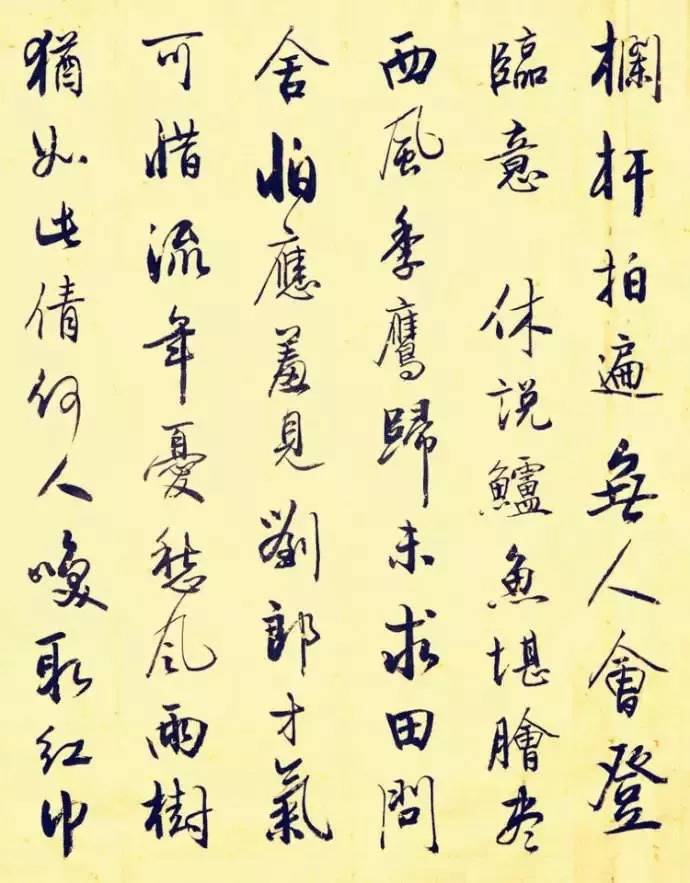 欄杆拍遍無人會登
臨意 休說鱸魚堪膾盡
西風季鷹歸未求田問
舍怕應羞見劉郎才氣
可惜流年憂愁風雨樹
猶如此倩何人喚取紅巾